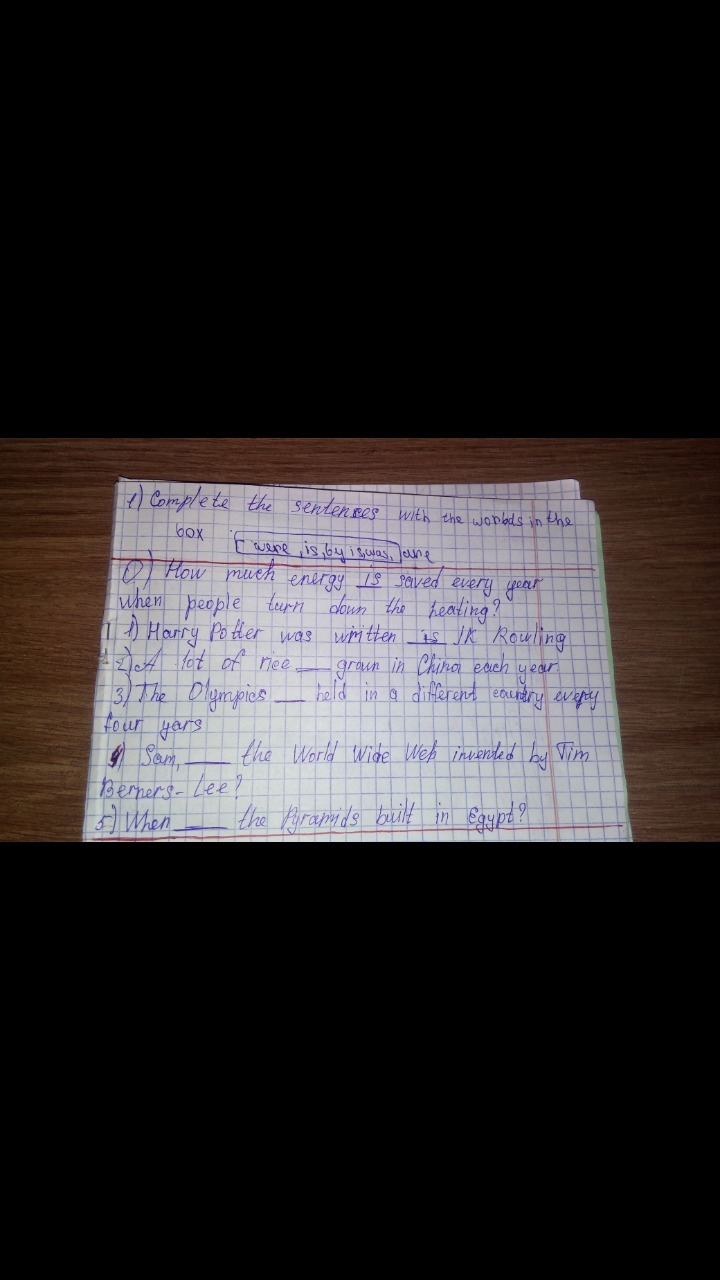 1) Complete the sentences with the worlds in the
box were, is, by is, was, are
0) How much energy is saved every year
when people turn down the heating?
1) Harry Potter was written is JK Rowling
2) A lot of rice ___ grown in China each year
3) The Olympics ___ held in a different country every
four yars
4) Sam, ___ the World Wide Web invented by Tim
Berners-Lee?
5) When ___ the Pyramids built in Egypt?